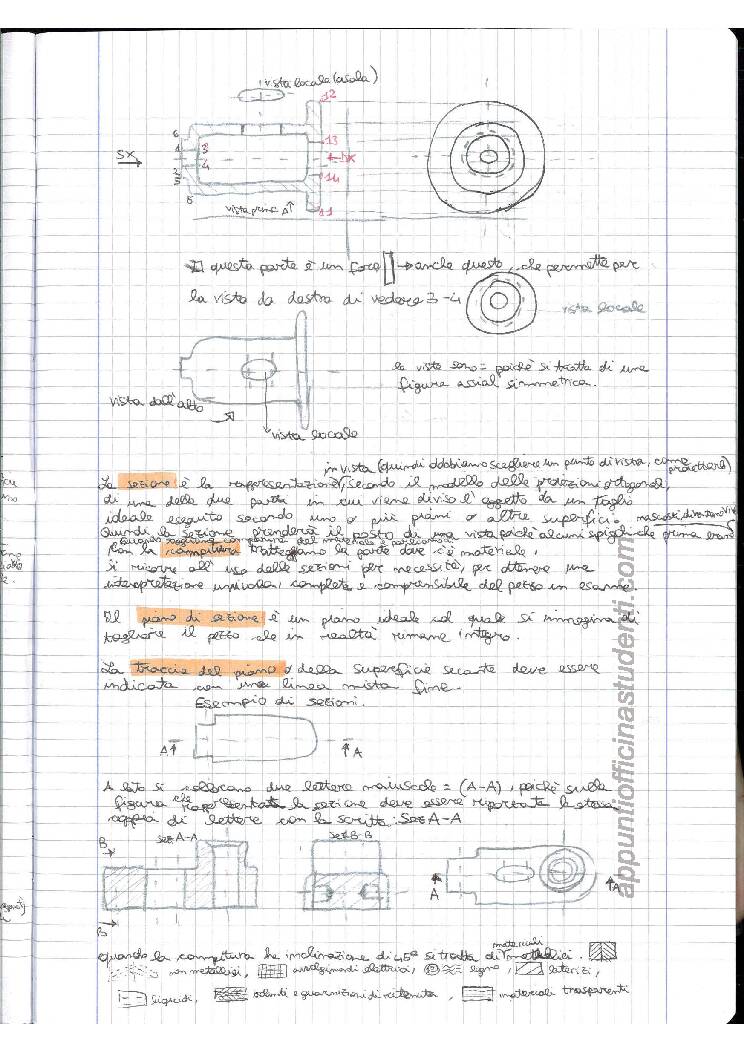 vista locale (asola)
12
6
1
3
13
SX
DX
4
2
14
5
vista prima A
11
questa parte è un foro → anche questo, che permette per
la vista da destra di vedere 3-4
vista locale
le viste sono = poichè si tratta di una
figura assial simmetrica.
vista dall'alto
vista locale
in vista (quindi dobbiamo scegliere un punto di vista, come proiettare)
La sezione è la rappresentazione, secondo il modello delle proiezioni ortogonali,
di una delle due parti in cui viene diviso l'oggetto da un taglio
ideale eseguito secondo uno o più piani o altre superfici.
nascosti, diventano
Quindi la sezione prenderà il posto di una vista poichè alcuni spigoli che prima erano
Con la campitura tratteggiamo la parte dove c'è materiale,
Si ricorre all'uso delle sezioni per necessità, per ottenere una
interpretazione univoca completa e comprensibile del pezzo in esame.
Il piano di sezione è un piano ideale col quale si immagina di
tagliare il pezzo che in realtà rimane integro.
La traccia del piano o della superficie secante deve essere
indicata con una linea mista fine.
Esempio di sezioni.
A
A
A lato si collocano due lettere maiuscole = (A-A), poichè sulla
figura che rappresentata la sezione deve essere riportata la stessa
coppia di lettere con la scritta: Sez A-A
B
sez A-A
sez B-B
A
A
B
materiali
quando la campitura ha inclinazione di 45° si tratta di metallici.
non metallici, avvolgimenti elettrici, legno, laterizi,
liquidi, solenti e guarnizioni di ritenuta, materiali trasparenti
appuntiofficinastudenti.com